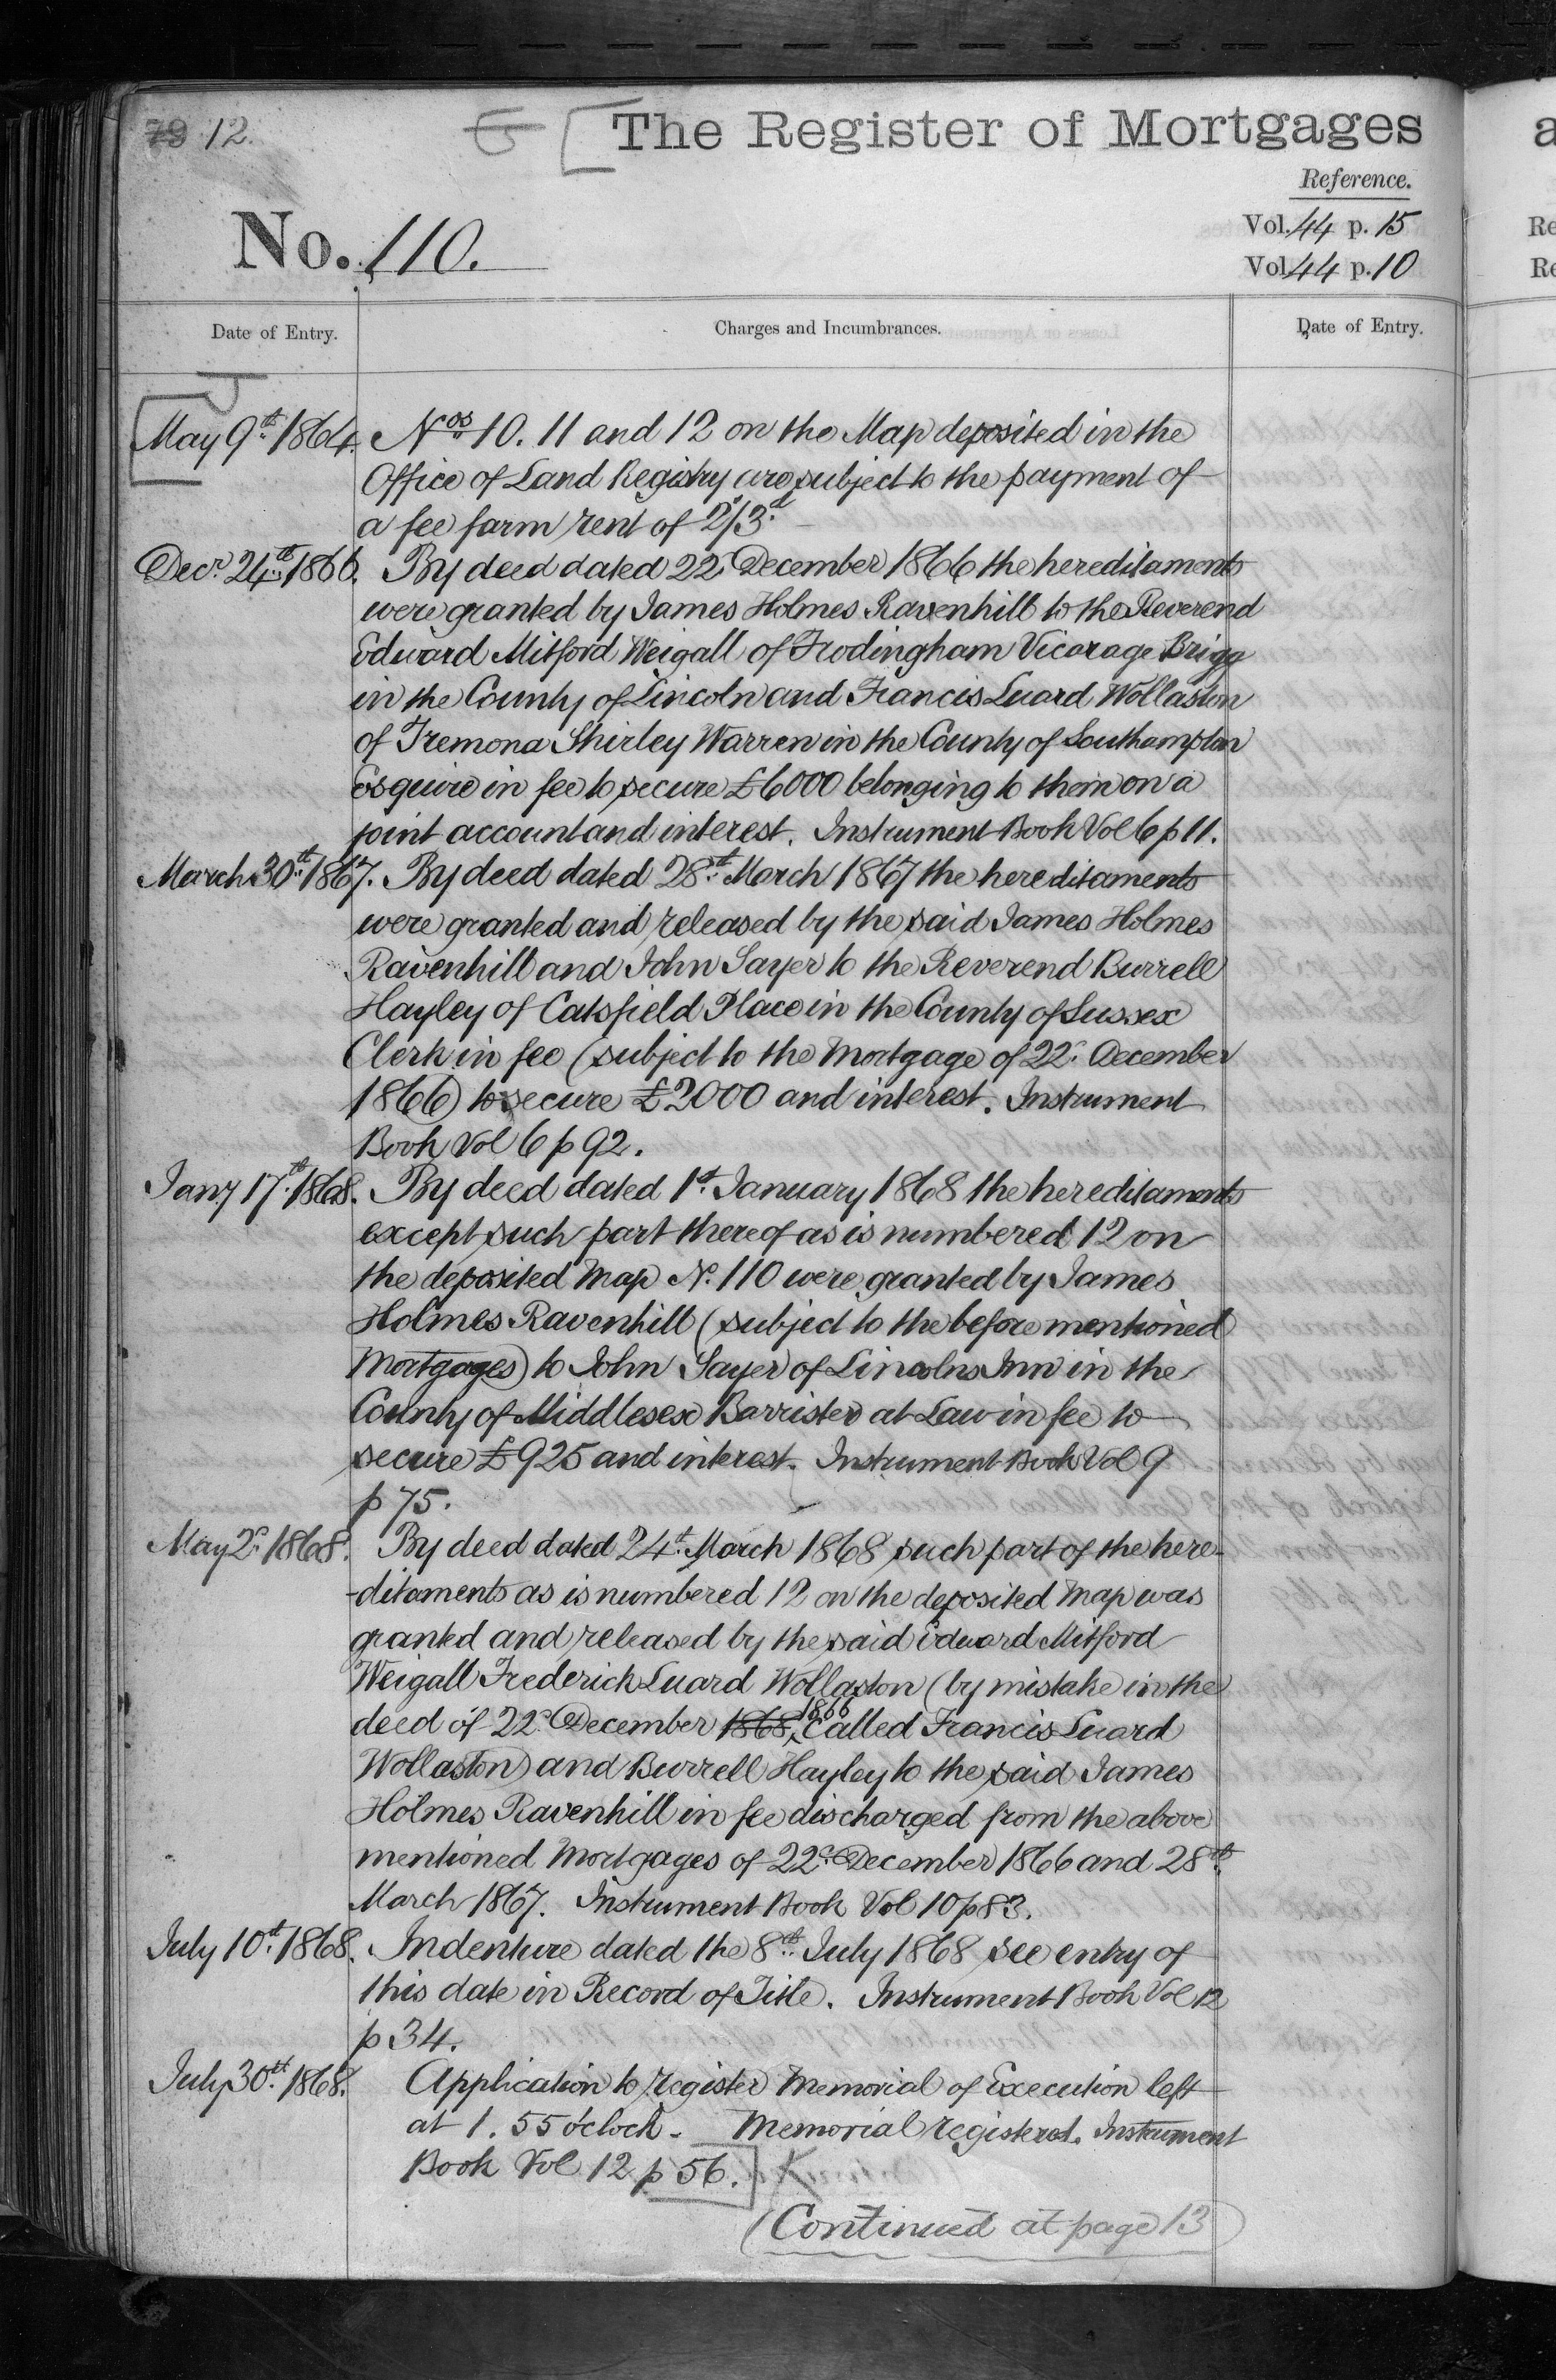 79 12.
The Register of Mortgages
Reference.
No. 110.
Vol. 44 p. 15
Vol. 44 p. 10
Date of Entry.
Charges and Incumbrances.
Date of Entry.
May 9th 1864. Nos 10. 11 and 12 on the Map deposited in the
Office of Land Registry are subject to the payment of
a fee farm rent of 2s/3d
Decr 24th 1866. By deed dated 22 December 1866 the hereditaments
were granted by James Holmes Ravenhill to the Reverend
Edward Mitford Weigall of Frodingham Vicarage Brigg
in the County of Lincoln and Francis Luard Wollaston
of Tremona Shirley Warren in the County of Southampton
Esquire in fee to secure £6000 belonging to them on a
joint account and interest. Instrument Book Vol 6 p 11.
March 30th 1867. By deed dated 28th March 1867 the hereditaments
were granted and released by the said James Holmes
Ravenhill and John Sayer to the Reverend Burrell
Hayley of Catsfield Place in the County of Sussex
Clerk in fee (subject to the Mortgage of 22d December
1866) to secure £2000 and interest. Instrument
Book Vol 6 p 92.
Jany 17th 1868. By deed dated 1st January 1868 the hereditaments
except such part thereof as is numbered 12 on
the deposited Map No. 110 were granted by James
Holmes Ravenhill (subject to the before mentioned
Mortgages) to John Sayer of Lincolns Inn in the
County of Middlesex Barrister at Law in fee to
secure £925 and interest. Instrument Book Vol 9
p 75.
May 2d 1868. By deed dated 24th March 1868 such part of the here-
-ditaments as is numbered 12 on the deposited Map was
granted and released by the said Edward Mitford
Weigall Frederick Luard Wollaston (by mistake in the
deed of 22d December 1868, 1866 called Francis Luard
Wollaston) and Burrell Hayley to the said James
Holmes Ravenhill in fee discharged from the above
mentioned Mortgages of 22d December 1866 and 28th
March 1867. Instrument Book Vol 10 p 83.
July 10th 1868. Indenture dated the 8th July 1868 see entry of
this date in Record of Title. Instrument Book Vol 12
p 34.
July 30th 1868. Application to register Memorial of Execution left
at 1. 55 o'clock. Memorial registered. Instrument
Book Vol 12 p 56.
(Continued at page 13)